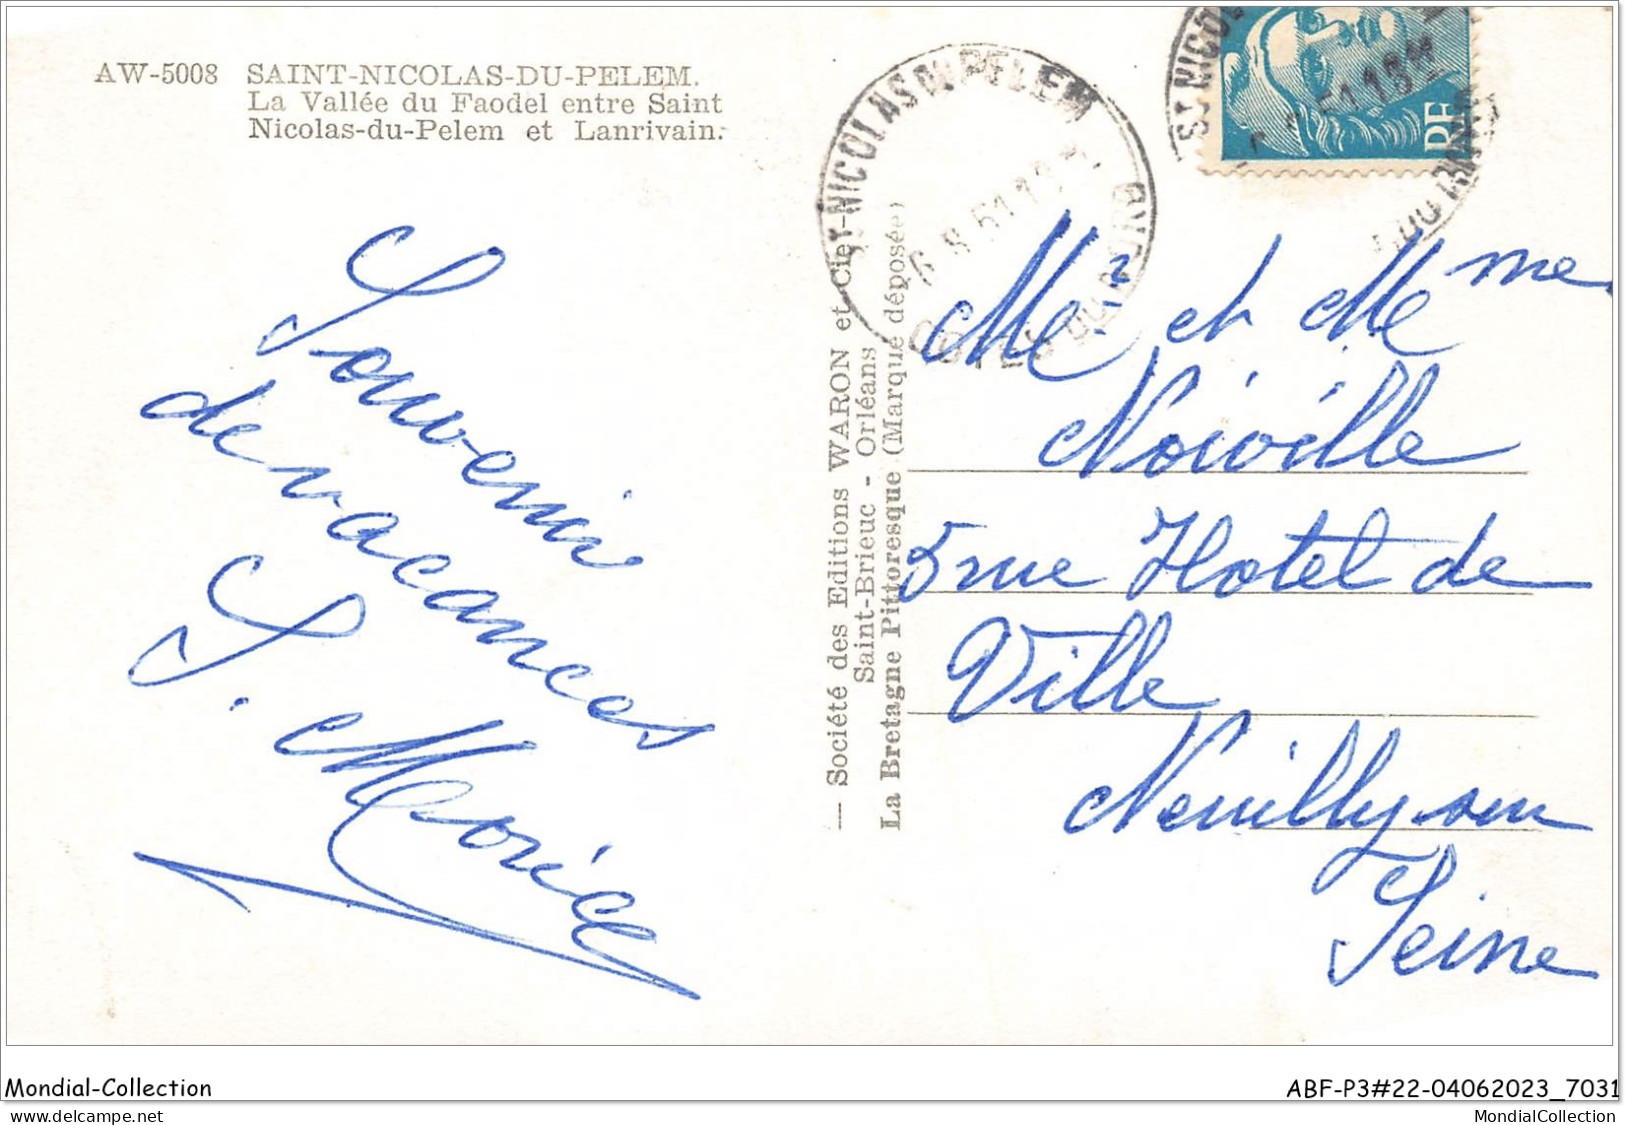 AW-5008 SAINT-NICOLAS-DU-PELEM.
La Vallée du Faodel entre Saint
Nicolas-du-Pelem et Lanrivain.
Souvenir
de vacances
S. Morice
— Société des Editions WARON et Cie —
Saint-Brieuc - Orléans
La Bretagne Pittoresque (Marque déposée)
ST-NICOLAS DU PELEM
ST NICOL
RF
Mr et Mme
Noiville
5 rue Hotel de
Ville
Neuilly sur
Seine
Mondial-Collection
ABF-P3#22-04062023_7031
www.delcampe.net
MondialCollection